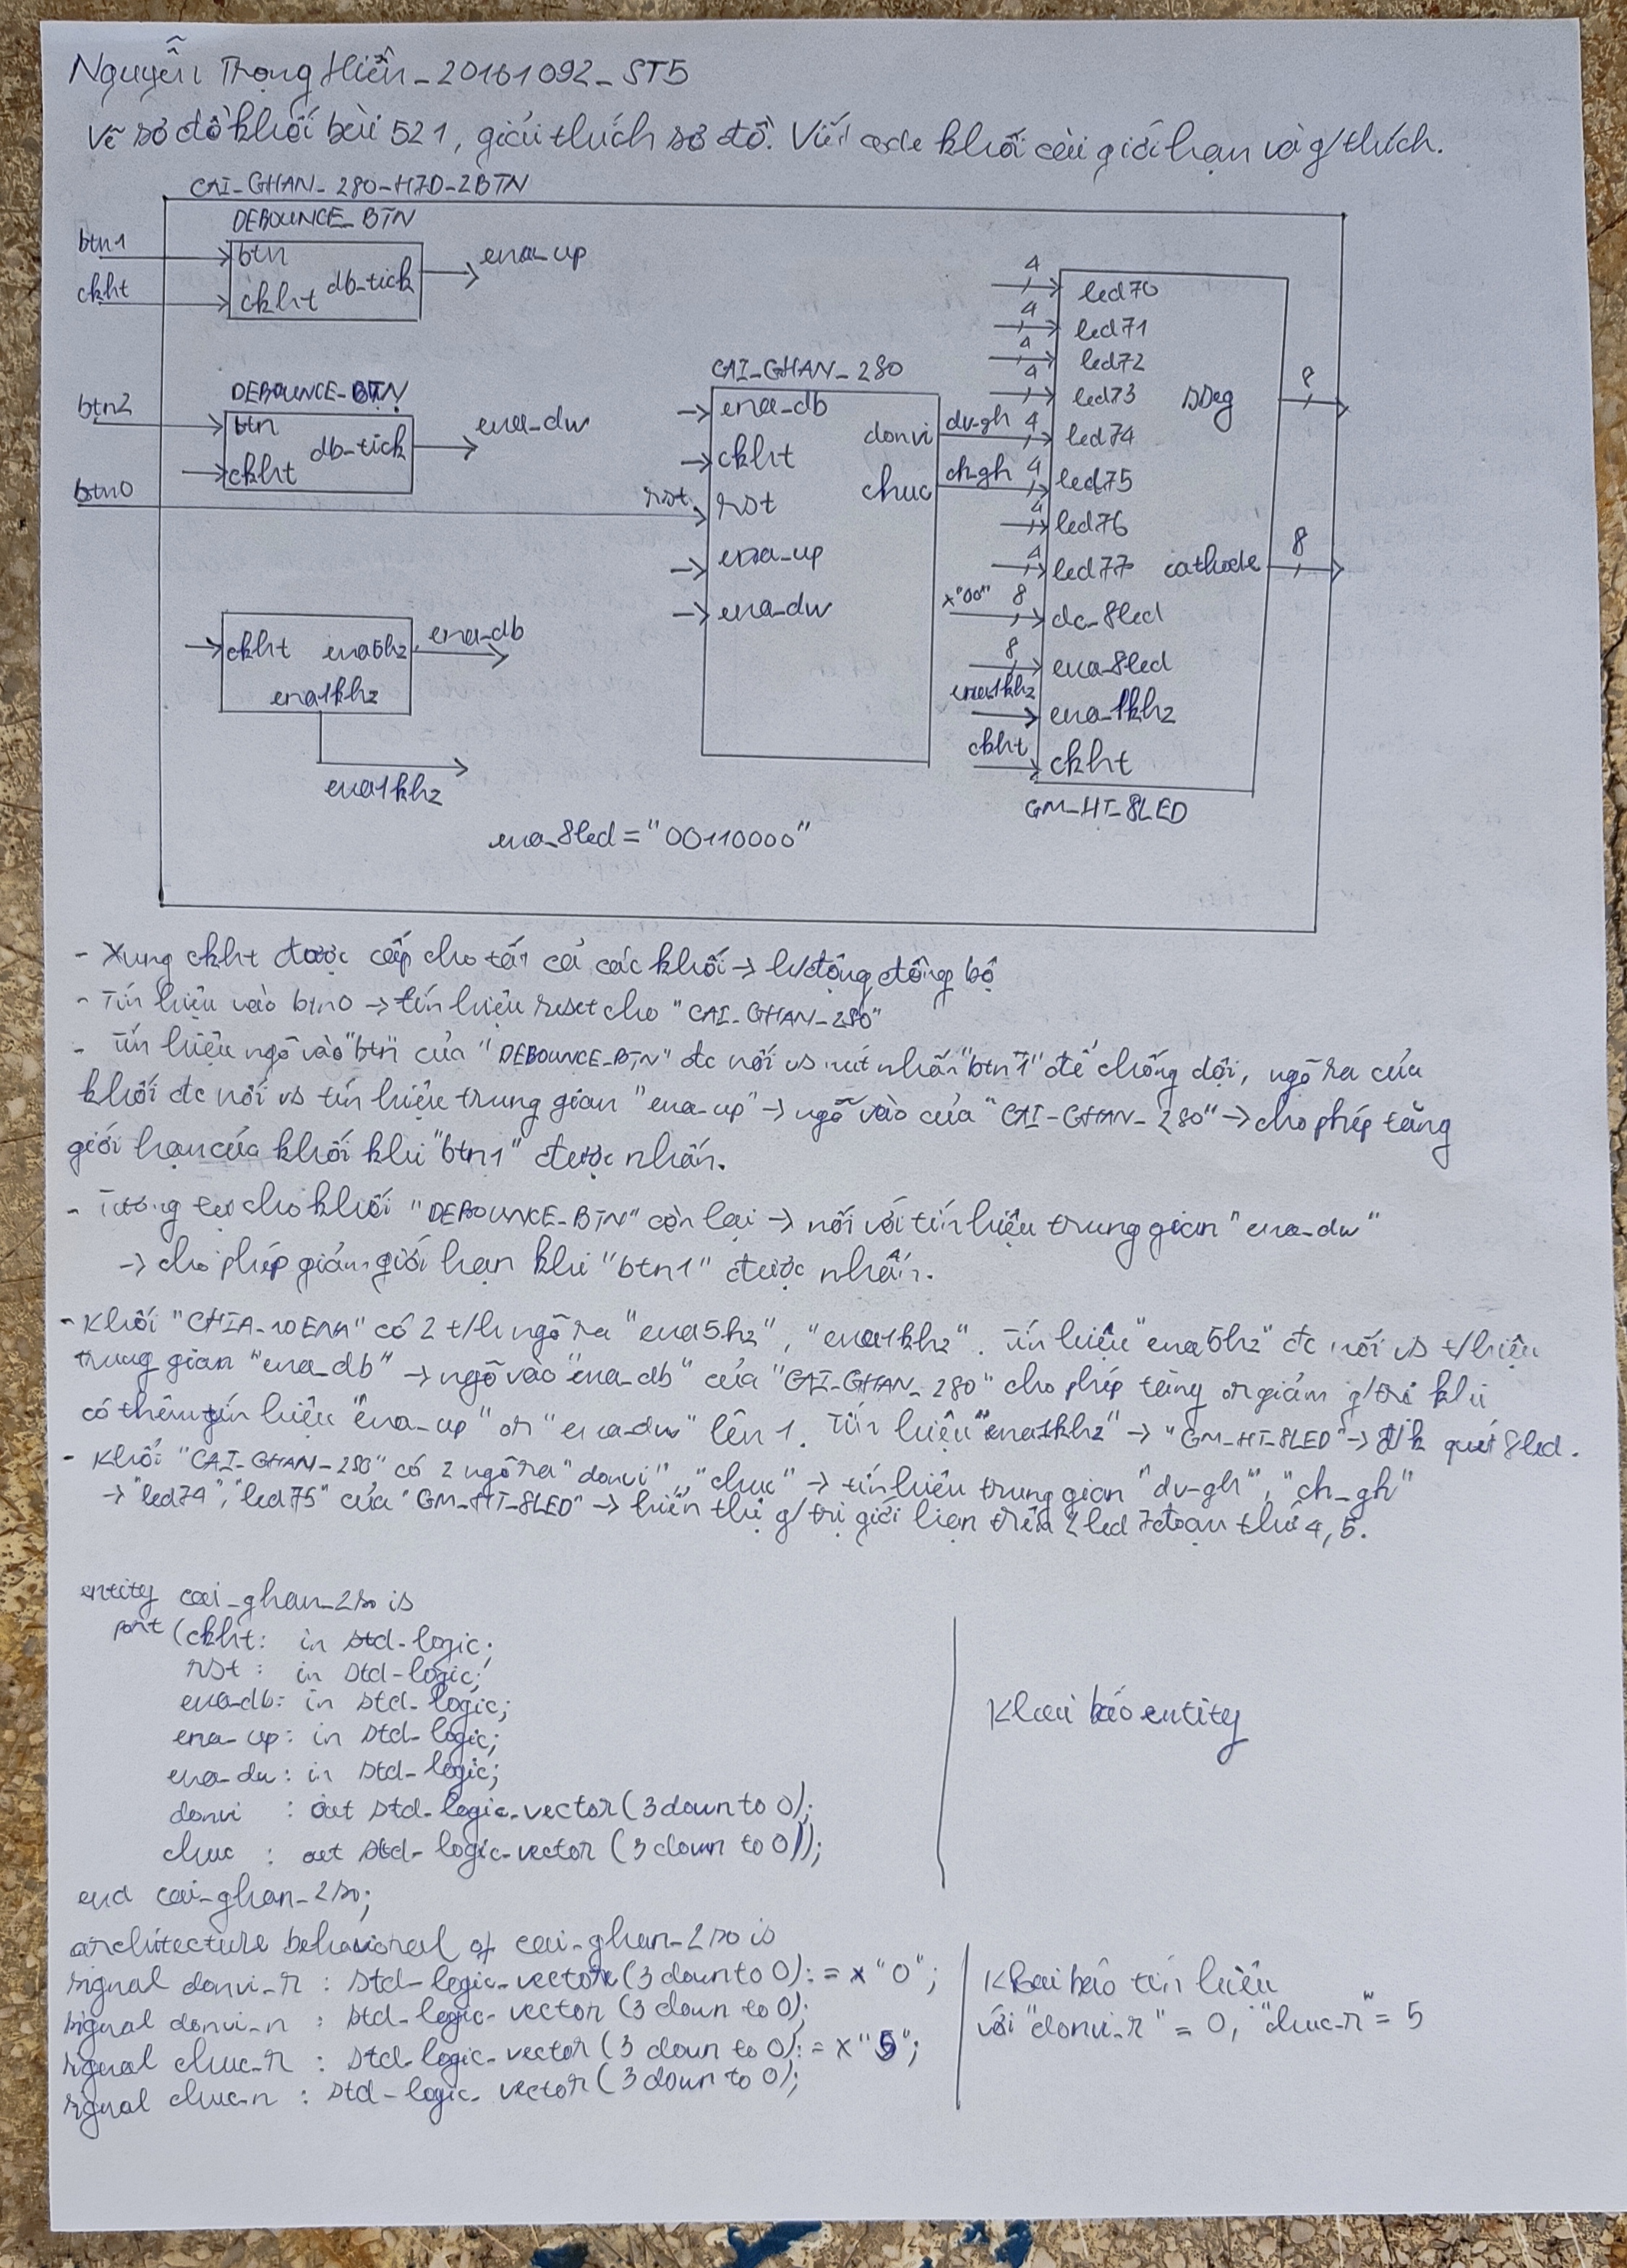 Nguyễn Trọng Hiền_20161092_ST5
Vẽ sơ đồ khối bài 521, giải thích sơ đồ. Viết code khối cài giới hạn và g/thích.
CAI_GHAN_2SO_H7D_2BTN
DEBOUNCE_BTN
btn1
btn
ena_up
ckht
ckht
db_tick
DEBOUNCE_BTN
btn2
btn
ena_dw
db_tick
ckht
btn0
ckht
ena5hz
ena_db
ena1khz
ena1khz
CAI_GHAN_2SO
ena_db
ckht
donvi
rst
rst
chuc
ena_up
ena_dw
dv_gh
4
ch_gh
4
4
led70
4
led71
4
led72
4
led73
sseg
8
led74
led75
4
led76
4
led77
cathode
8
x"00"
8
dc_8led
8
ena_8led
ena1khz
ena_1khz
ckht
ckht
GM_HT_8LED
ena_8led = "00110000"
- Xung ckht được cấp cho tất cả các khối → h/động đồng bộ
- Tín hiệu vào btn0 → tín hiệu reset cho "CAI_GHAN_2SO"
- Tín hiệu ngõ vào "btn" của "DEBOUNCE_BTN" đc nối vs nút nhấn "btn1" để chống dội, ngõ ra của
khối đc nối vs tín hiệu trung gian "ena_up" → ngõ vào của "CAI_GHAN_2SO" → cho phép tăng
giới hạn của khối khi "btn1" được nhấn.
- Tương tự cho khối "DEBOUNCE_BTN" còn lại → nối với tín hiệu trung gian "ena_dw"
→ cho phép giảm giới hạn khi "btn1" được nhấn.
- Khối "CHIA_10ENA" có 2 t/h ngõ ra "ena5hz", "ena1khz". Tín hiệu "ena5hz" đc nối vs t/hiệu
trung gian "ena_db" → ngõ vào "ena_db" của "CAI_GHAN_2SO" cho phép tăng or giảm g/trị khi
có thêm tín hiệu "ena_up" or "ena_dw" lên 1. Tín hiệu "ena1khz" → "GM_HT_8LED" → đ/k quét 8led.
- Khối "CAI_GHAN_2SO" có 2 ngõ ra "donvi", "chuc" → tín hiệu trung gian "dv_gh", "ch_gh"
→ "led74", "led75" của "GM_HT_8LED" → hiển thị g/trị giới hạn trên 2 led 7 đoạn thứ 4, 5.
entity cai_ghan_2so is
port (ckht: in std_logic;
rst : in std_logic;
ena_db: in std_logic;
ena_up: in std_logic;
ena_dw: in std_logic;
donvi : out std_logic_vector (3 down to 0);
chuc : out std_logic_vector (3 down to 0));
end cai_ghan_2so;
Khai báo entity
architecture behavioral of cai_ghan_2so is
signal donvi_r : std_logic_vector (3 down to 0) := x"0";
signal donvi_n : std_logic_vector (3 down to 0);
signal chuc_r : std_logic_vector (3 down to 0) := x"5";
signal chuc_n : std_logic_vector (3 down to 0);
Khai báo tín hiệu
với "donvi_r" = 0, "chuc_r" = 5